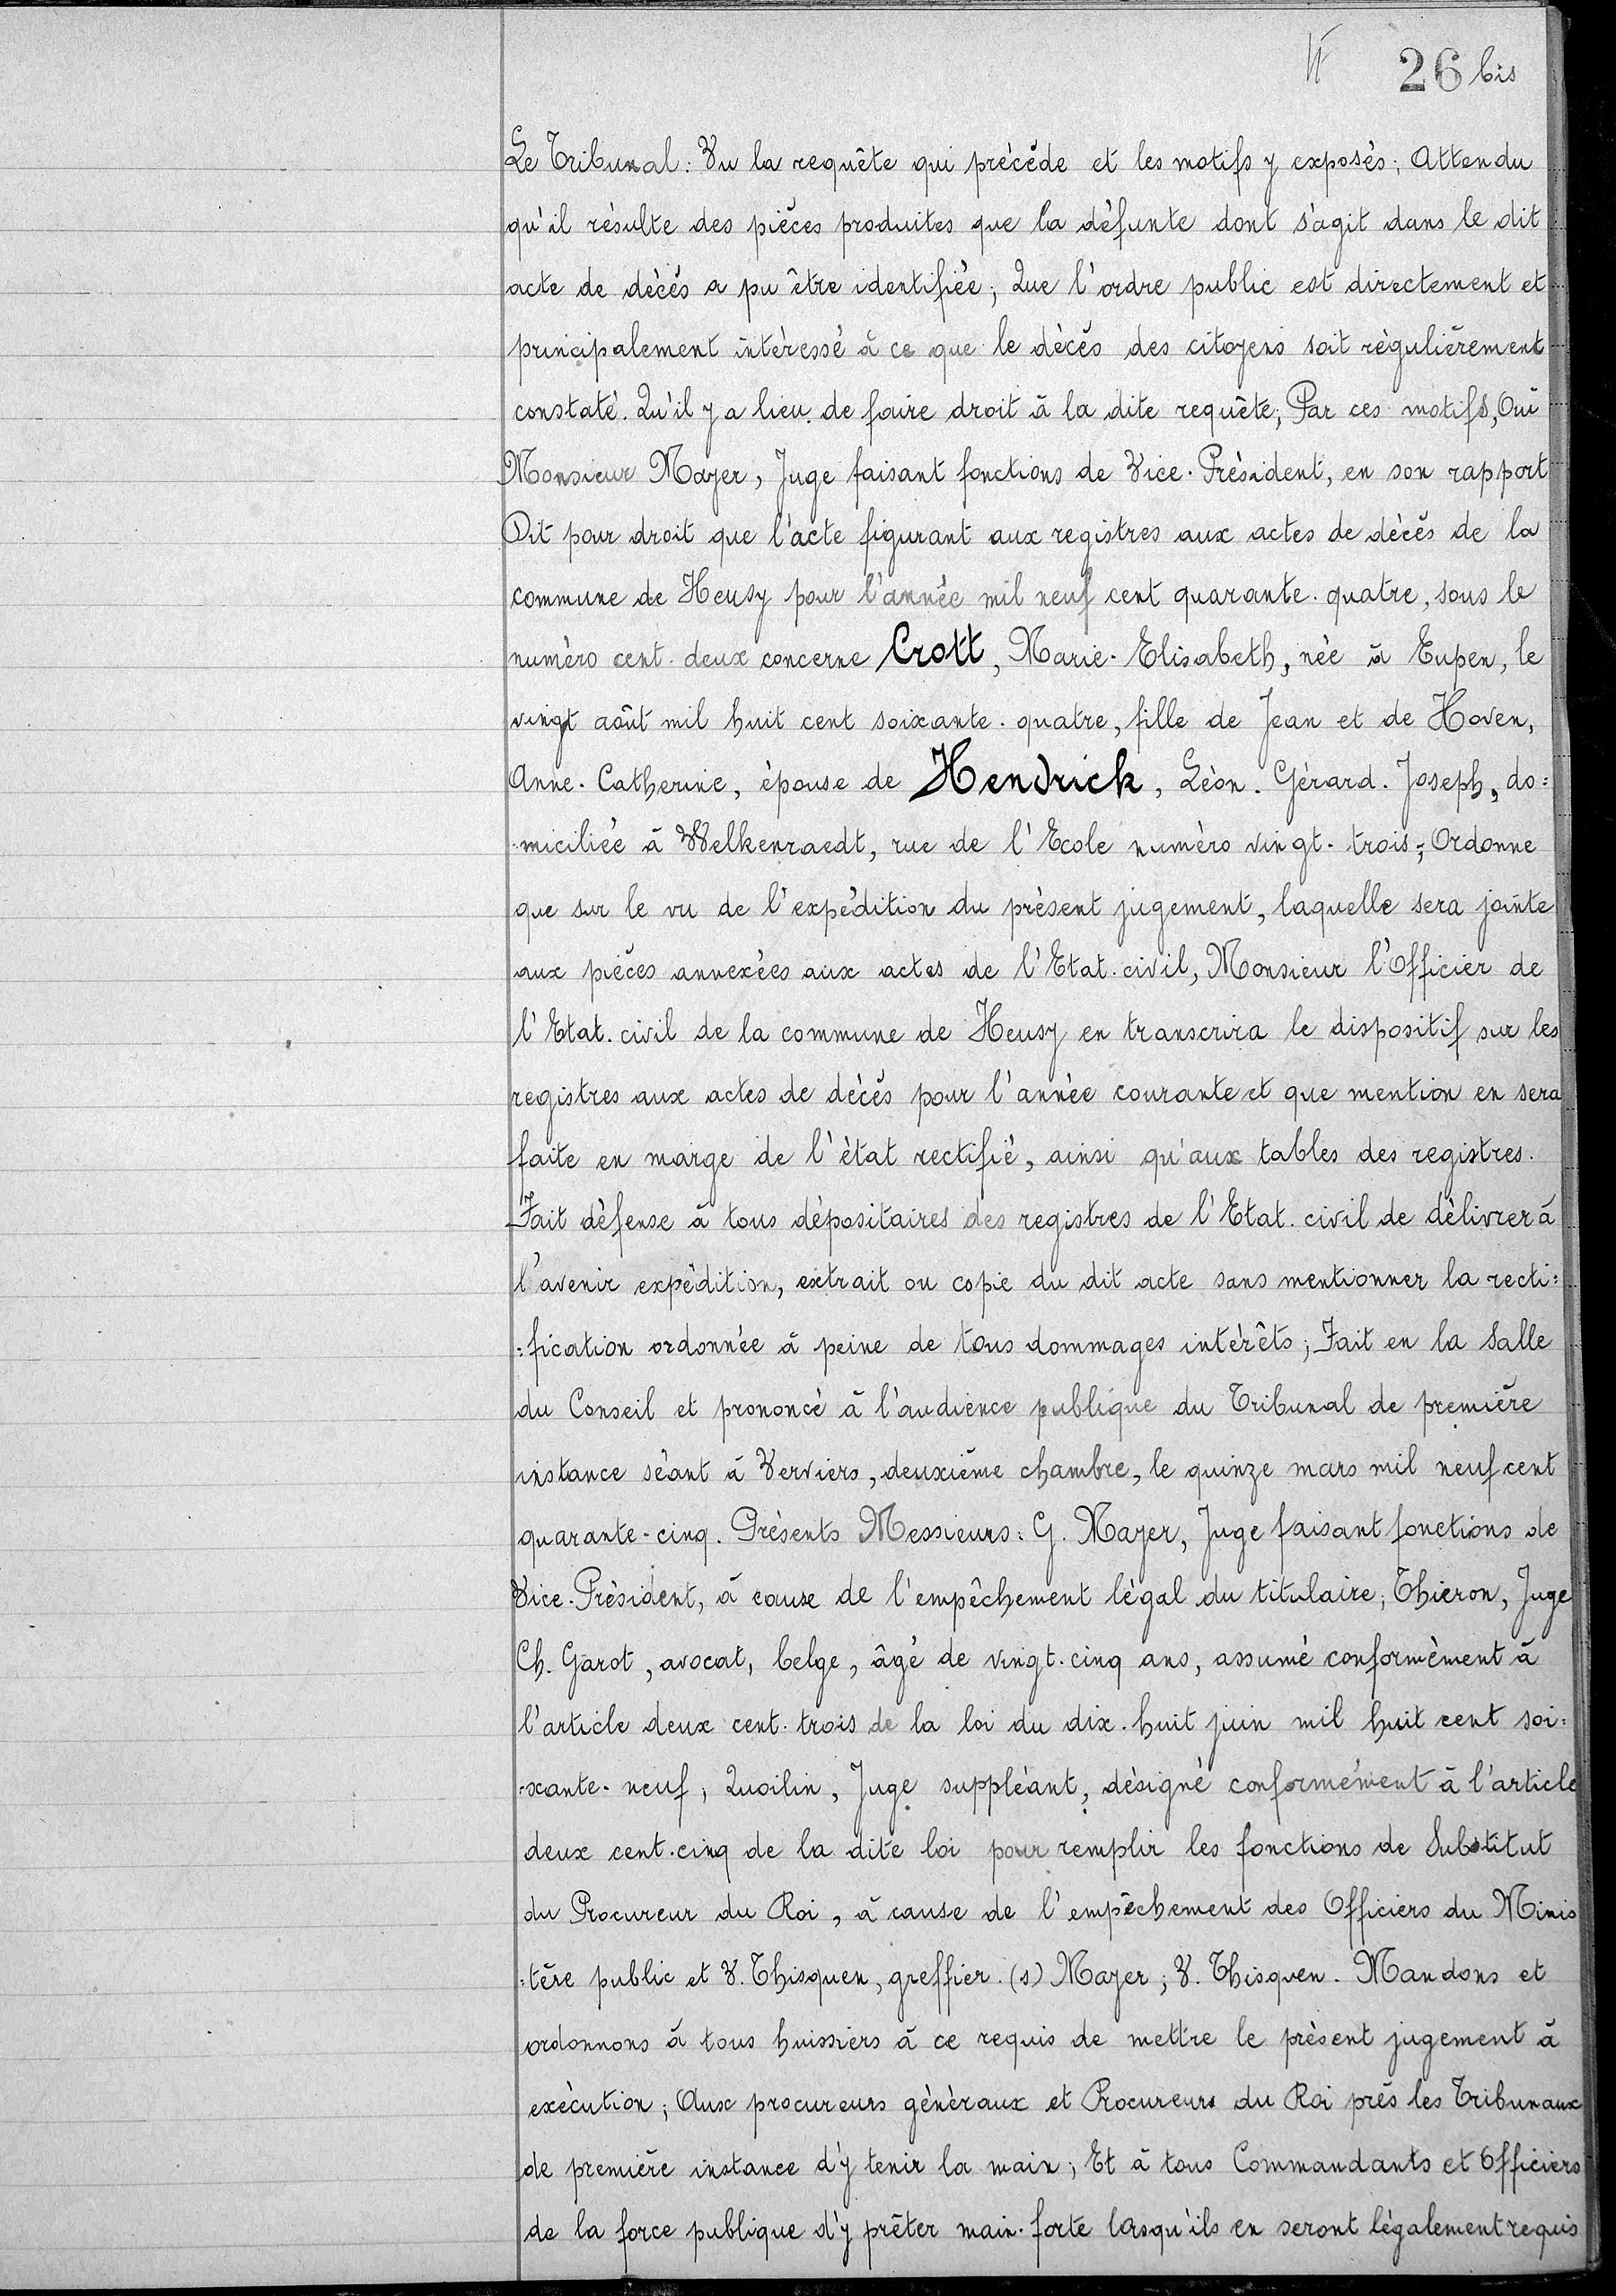 26 bis
Le Tribunal: Vu la requête qui précède et les motifs y exposés; Attendu
qu'il résulte des pièces produites que la défunte dont s'agit dans le dit
acte de décès a pu être identifiée; Que l'ordre public est directement et
principalement intéressé à ce que le décès des citoyens soit régulièrement
constaté. Qu'il y a lieu de faire droit à la dite requête; Par ces motifs, Ouï
Monsieur Mayer, Juge faisant fonctions de Vice-Président, en son rapport
Dit pour droit que l'acte figurant aux registres aux actes de décès de la
commune de Heusy pour l'année mil neuf cent quarante-quatre, sous le
numéro cent-deux concerne Crott, Marie-Elisabeth, née à Eupen, le
vingt août mil huit cent soixante-quatre, fille de Jean et de Hoven,
Anne-Catherine, épouse de Hendrick, Léon-Gérard-Joseph, do=
miciliée à Welkenraedt, rue de l'Ecole numéro vingt-trois; Ordonne
que sur le vu de l'expédition du présent jugement, laquelle sera jointe
aux pièces annexées aux actes de l'Etat-civil, Monsieur l'Officier de
l'Etat-civil de la commune de Heusy en transcrira le dispositif sur les
registres aux actes de décès pour l'année courante et que mention en sera
faite en marge de l'état rectifié, ainsi qu'aux tables des registres.
Fait défense à tous dépositaires des registres de l'Etat-civil de délivrer à
l'avenir expédition, extrait ou copie du dit acte sans mentionner la recti=
=fication ordonnée à peine de tous dommages intérêts; Fait en la Salle
du Conseil et prononcé à l'audience publique du Tribunal de première
instance séant à Verviers, deuxième chambre, le quinze mars mil neuf cent
quarante-cinq. Présents Messieurs: G. Mayer, Juge faisant fonctions de
Vice-Président, à cause de l'empêchement légal du titulaire; Thieron, Juge
Ch. Garot, avocat, belge, âgé de vingt-cinq ans, assumé conformément à
l'article deux cent-trois de la loi du dix-huit juin mil huit cent soi=
=xante-neuf, Quoilin, Juge suppléant, désigné conformément à l'article
deux cent-cinq de la dite loi pour remplir les fonctions de Substitut
du Procureur du Roi, à cause de l'empêchement des Officiers du Minis
=tère public et V. Thisquen, greffier. (s) Mayer; V. Thisquen. Mandons et
ordonnons à tous huissiers à ce requis de mettre le présent jugement à
exécution; Aux procureurs généraux et Procureurs du Roi près les Tribunaux
de première instance d'y tenir la main; Et à tous Commandants et Officiers
de la force publique d'y prêter main-forte lorsqu'ils en seront légalement requis